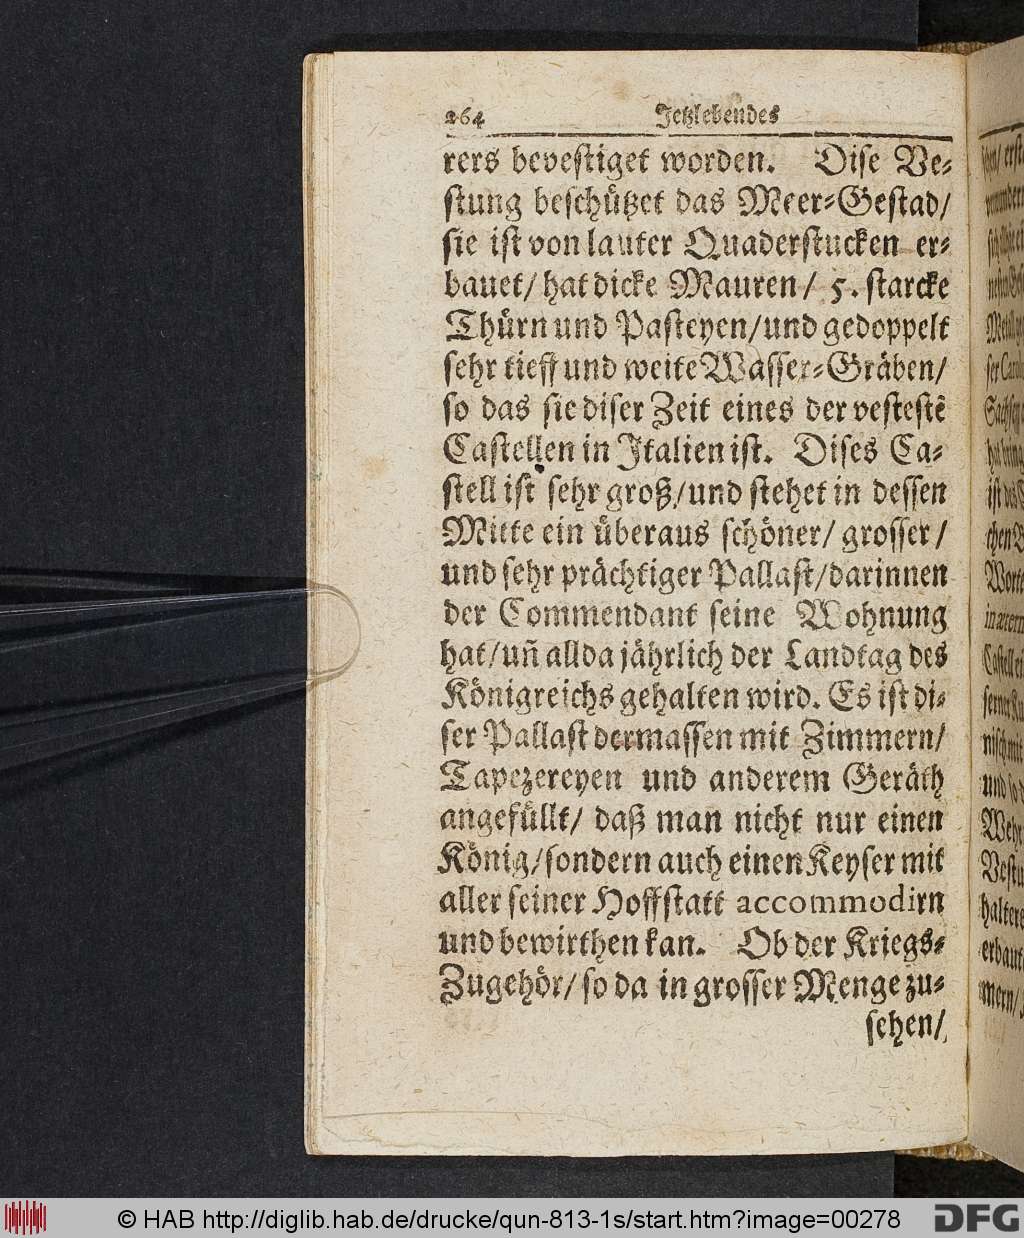 264 Jetzlebendes
rers bevestiget worden. Dise Ve-
stung beschützet das Meer-Gestad/
sie ist von lauter Quaderstucken er-
bauet/ hat dicke Mauren/ 5. starcke
Thürn und Pasteyen/und gedoppelt
sehr tieff und weite Wasser-Gräben/
so das sie diser Zeit eines der vestestē
Castellen in Italien ist. Dises Ca-
stell ist sehr groß/und stehet in dessen
Mitte ein überaus schöner/ grosser/
und sehr prächtiger Pallast/darinnen
der Commendant seine Wohnung
hat/uñ allda jährlich der Landtag des
Königreichs gehalten wird. Es ist di-
ser Pallast dermassen mit Zimmern/
Tapezereyen und anderem Geräth
angefüllt/ daß man nicht nur einen
König/sondern auch einen Keyser mit
aller seiner Hoffstatt accommodirn
und bewirthen kan. Ob der Kriegs-
Zugehör/ so da in grosser Menge zu-
sehen/
© HAB http://diglib.hab.de/drucke/qun-813-1s/start.htm?image=00278
DFG